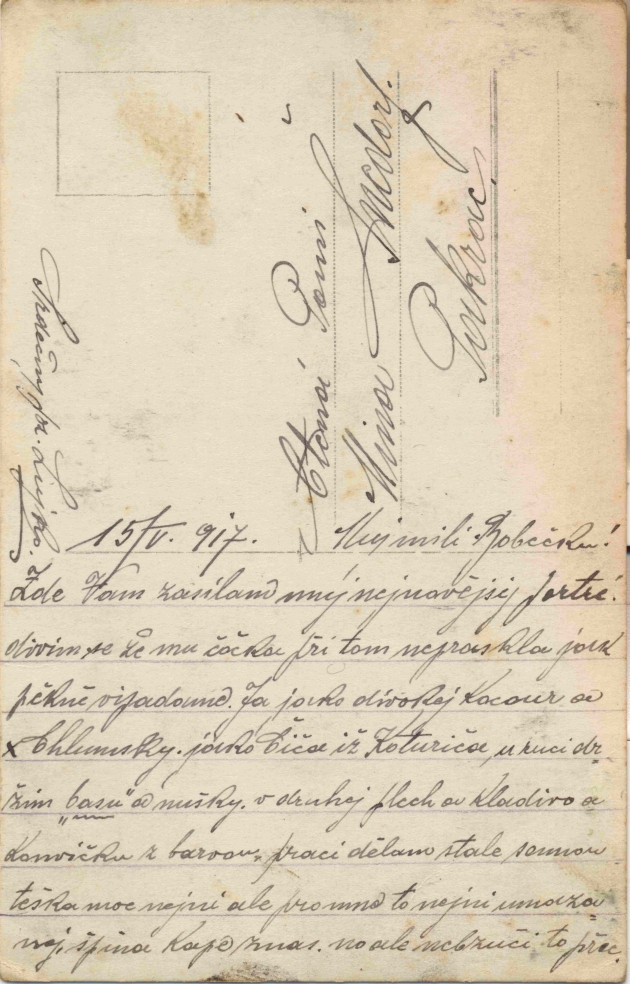 Ctěná Paní
Mina
Pakrac.
Srdečný poz.
15/V. 917. Muj mili Bobečku!
Zde Vam zasilam můj nejnovějjej portré.
divim se že mu čočka při tom nepraskla jak
pěkně vipadame. Ja jako divokej kocour a
x Chlumsky. jako Čiča iz Koturića, u ruci dr-
žim "basu" a nušky. v druhej plech a kladivo a
Konvičku z barvou, praci dělam stale samou
teška moc nejni ale pro mně to nejni umaza-
nej, špina kape z nas. no ale nebzučí to přec.